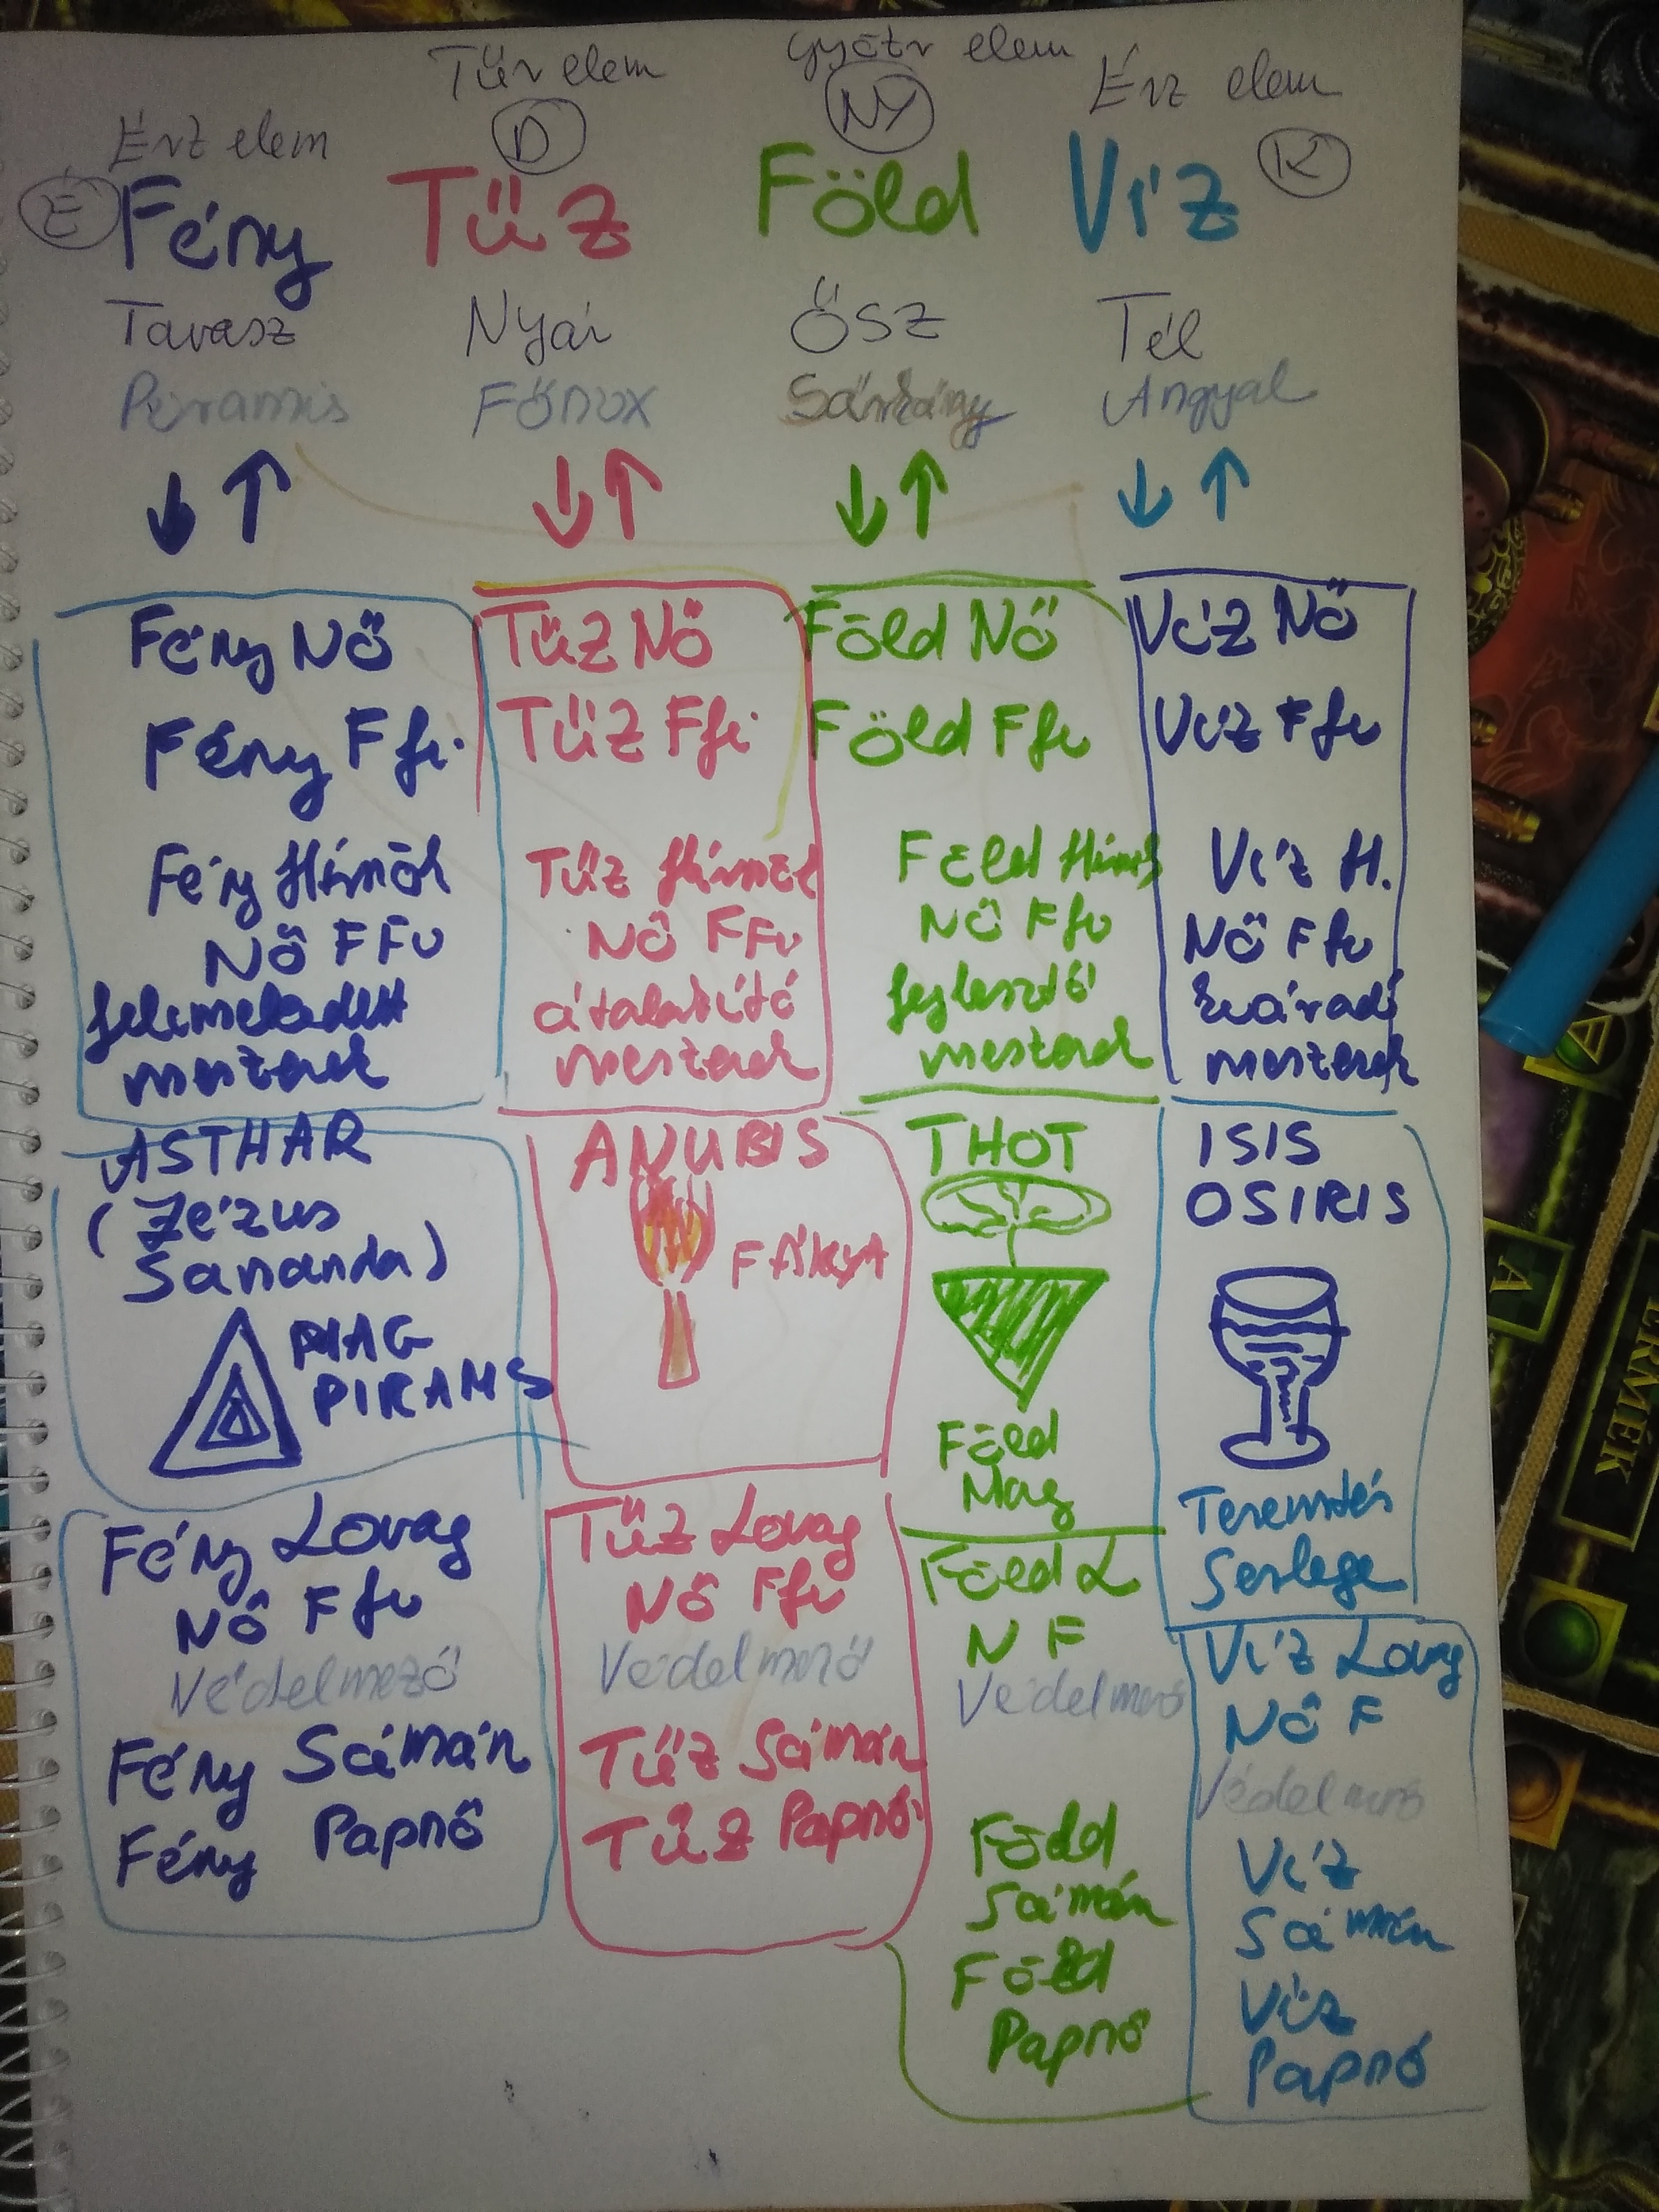 Érz elem
Tűz elem
elem
Érz elem
É
D
NY
K
Fény
Tűz
Föld
Víz
Tavasz
Nyár
Ősz
Tél
Piramis
Főnix
Sárkány
Angyal
Fény Nő
Fény Ffi.
Fény Hírnök
Nő FFi
felemelkedett
mesterek
Tűz Nő
Tűz Ffi.
Tűz Hírnök
Nő FFi
átalakító
mesterek
Föld Nő
Föld Ffi
Föld Hírnök
Nő Ffi
fejlesztő
mesterek
Víz Nő
Víz Ffi
Víz H.
Nő Ffi
mesterek
ASTHAR
(Jézus
Sananda)
MAG
PIRAMIS
ANUBIS
FÁKLYA
THOT
Föld
Mag
ISIS
OSIRIS
Teremtés
Serlege
Fény Lovag
Nő Ffi
Védelmező
Fény Sámán
Fény Papnő
Tűz Lovag
Nő Ffi
Védelmező
Tűz Sámán
Tűz Papnő
Föld L
N F
Védelmező
Föld
Sámán
Föld
Papnő
Víz Lovag
Nő F
Védelmező
Víz
Sámán
Víz
Papnő
A
TERMÉK